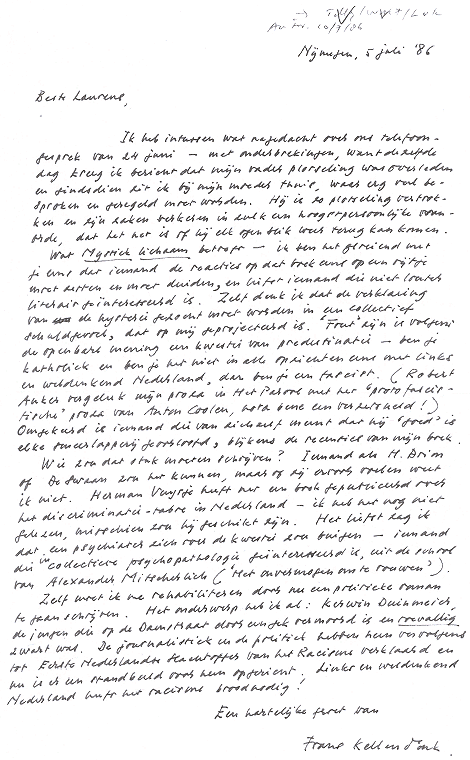 → Tom/WvT/LvK
10/7/86
Nijmegen, 5 juli '86
Beste Laurens,
Ik heb intussen wat nagedacht over ons telefoon-
gesprek van 24 juni — met onderbrekingen, want dezelfde
dag kreeg ik bericht dat mijn vader plotseling was overleden
en sindsdien zit ik bij mijn moeder thuis, waar erg veel be-
sproken en geregeld moet worden. Hij is zo plotseling vertrok-
ken en zijn zaken verkeren in zulk een hoogstpersoonlijke wan-
orde, dat het net is of hij elk ogenblik weer terug kan komen.
Wat Mystiek lichaam betreft — ik ben het geheel met
je eens dat iemand de reacties op dat boek eens op een rijtje
moet zetten en moet duiden, en liefst iemand die niet louter
literair geïnteresseerd is. Zelf denk ik dat de verklaring
van de hysterie gezocht moet worden in een collectief
schuldgevoel, dat op mij geprojecteerd is. 'Fout' zijn is volgens
de openbare mening een kwestie van predestinatie — ben je
katholiek en ben je het niet in alle opzichten eens met links
en weldenkend Nederland, dan ben je een fascist. (Robert
Anker vergeleek mijn proza in Het Parool met het 'protofascis-
tische' proza van Anton Coolen, nota bene een verzetsheld!)
Omgekeerd is iemand die van zichzelf meent dat hij 'goed' is
elke smeerlapperij geoorloofd, blijkens de recensies van mijn boek.
Wie zou dat stuk moeten schrijven? Iemand als H. Brim
of De Swaan zou het kunnen, maar of zij ervoor voelen weet
ik niet. Herman Vuijsje heeft net een boek gepubliceerd over
het discriminatie-taboe in Nederland — ik heb het nog niet
gelezen, misschien zou hij geschikt zijn. Het liefst zag ik
dat een psychiater zich over de kwestie zou buigen — iemand
die in collectieve psychopathologie geïnteresseerd is, uit de school
van Alexander Mitscherlich ('Het onvermogen om te rouwen').
Zelf moet ik me rehabiliteren door nu een politieke roman
te gaan schrijven. Het onderwerp heb ik al: Kerwin Duinmeijer,
de jongen die op de Damstraat door een gek vermoord is en toevallig
zwart was. De journalistiek en de politiek hebben hem vervolgens
tot Eerste Nederlandse Slachtoffer van het Racisme verklaard en
nu is er een standbeeld voor hem opgericht. Links en weldenkend
Nederland heeft het racisme broodnodig!
Een hartelijke groet van
Frans Kellendonk